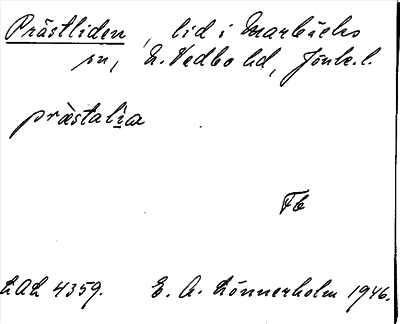 Prästliden, lid i Marbäcks
sn, N. Vedbo hd, Jönk. l.
prästalia
Fb
LAL 4359. E. A. Lönnerholm 1946.